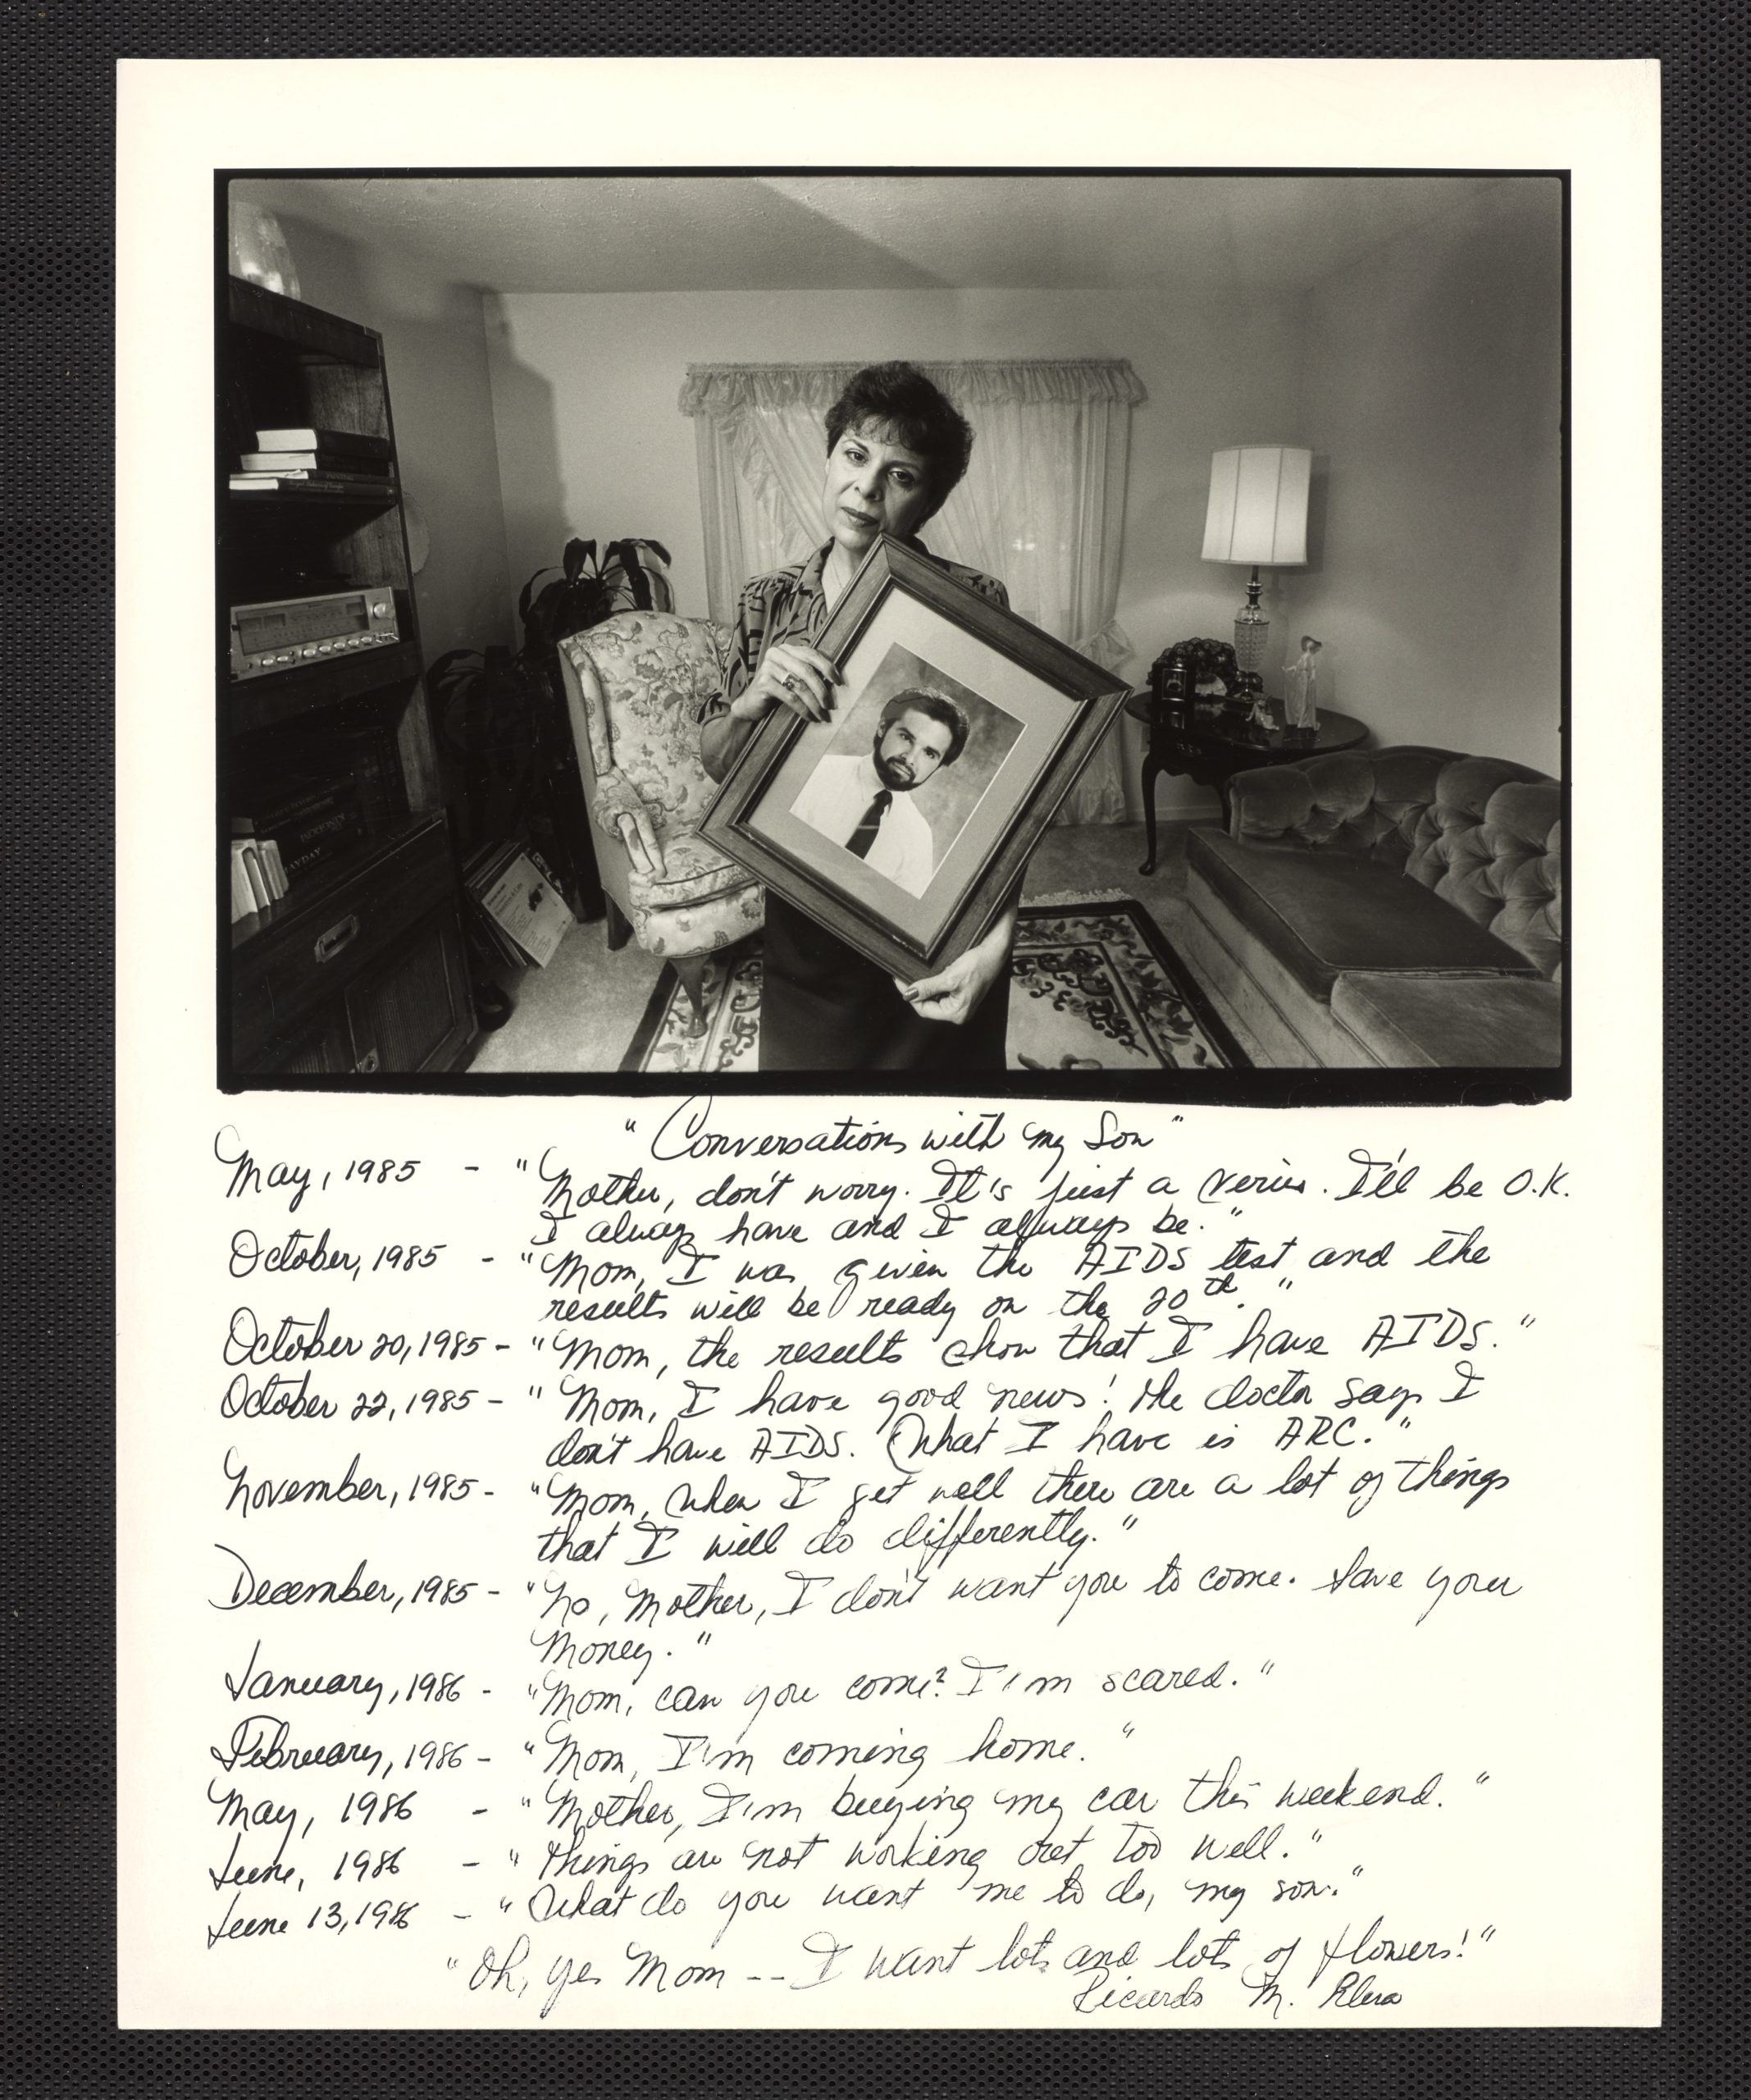 "Conversations with my Son"
May, 1985 - "Mother, don't worry. It's just a verius. I'll be O.K.
I alway have and I allways be."
October, 1985 - "Mom, I was given the AIDS test and the
results will be ready on the 20th."
October 20, 1985 - "Mom, the results show that I have AIDS."
October 22, 1985 - "Mom, I have good news! the doctor says I
don't have AIDS. What I have is ARC."
November, 1985 - "Mom, when I get well there are a lot of things
that I will do differently."
December, 1985 - "No, Mother, I don't want you to come. Save your
Money."
January, 1986 - "Mom, can you come? I'm scared."
February, 1986 - "Mom, I'm coming home."
May, 1986 - "Mother, I'm buying my car this weekend."
June, 1986 - "things are not working out too well."
June 13, 1986 - "What do you want me to do, my son."
"Oh, yes Mom -- I want lots and lots of flowers!"
Ricardo M.